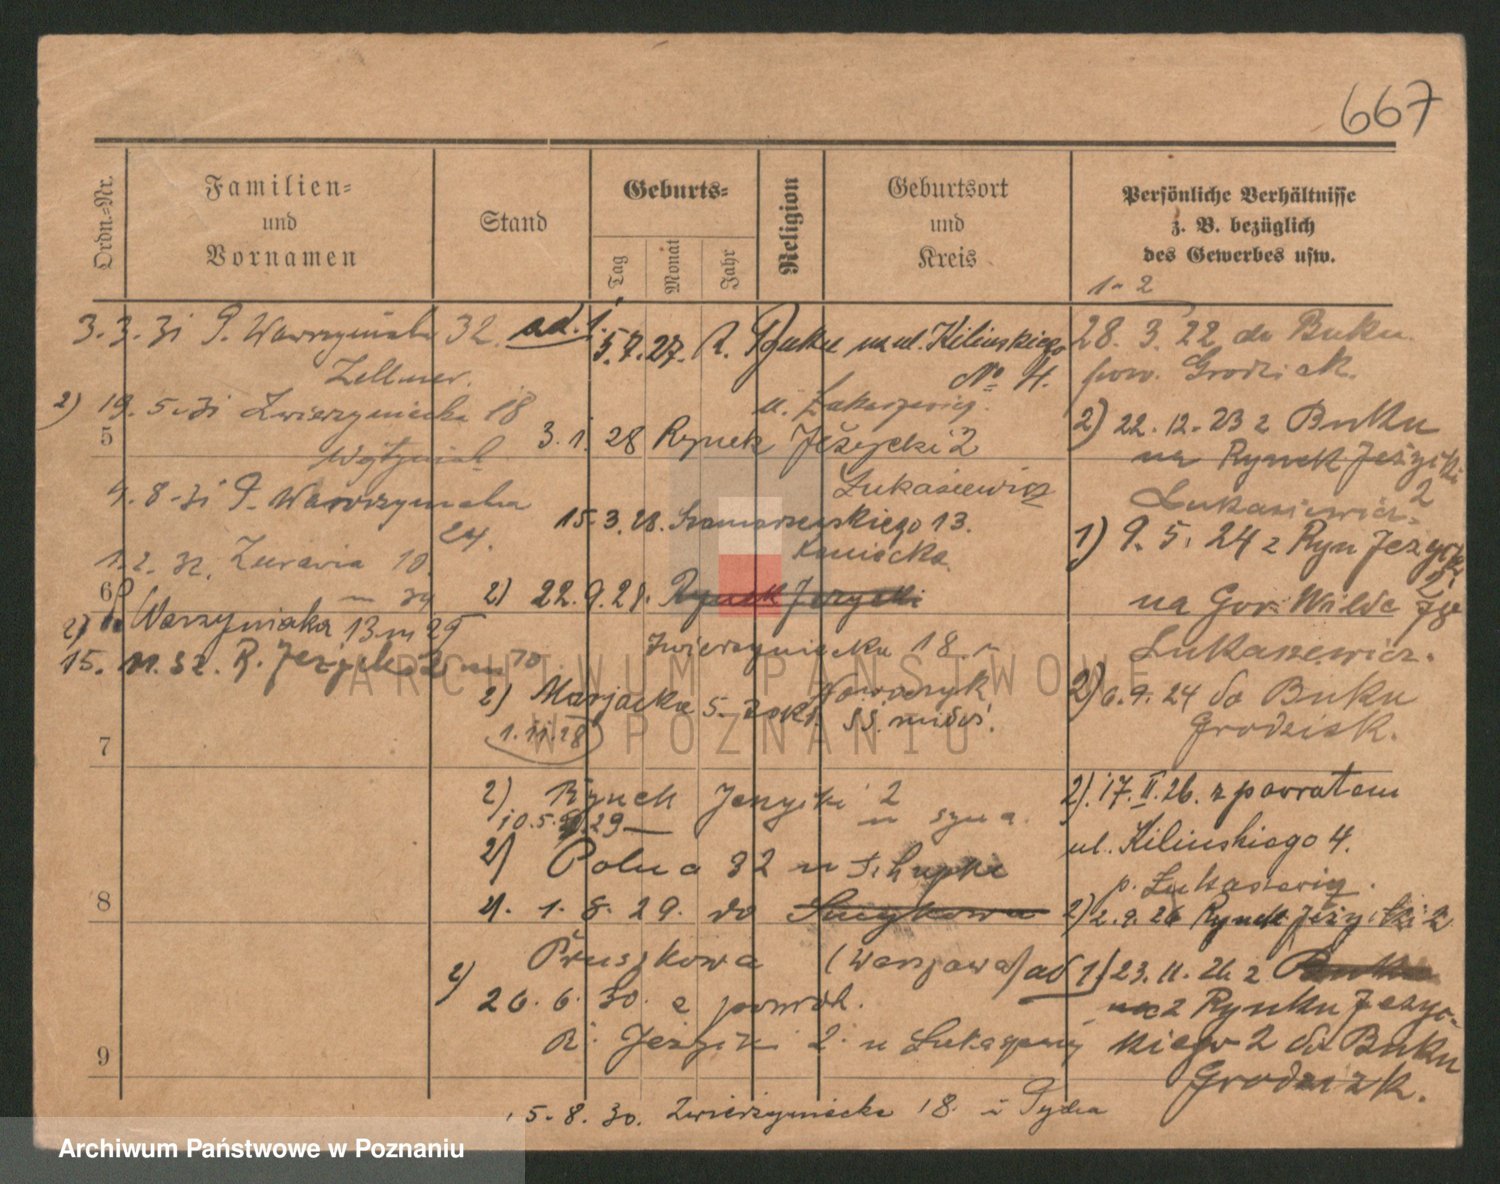 667
Ordn.=Nr.
Familien=
und
Vornamen
Stand
Geburts=
Tag
Monat
Jahr
Religion
Geburtsort
und
Kreis
Persönliche Verhältnisse
z. B. bezüglich
des Gewerbes usw.
1 - 2
3. 3. 31 P. Wawrzyniaka 32.
Zellner.
2) 19. 5. 31 Zwierzyniecka 18
5
4. 8. 31 P. Wawrzyniaka
24.
1. 2. 32. Żurawia 10.
6
Warzyniaka 13 m 25
15. 11. 32. R. Jeżycki 2 m 70.
7
8
9
ad. 1.
5. 7. 27. z. Buku na ul. Kilinskiego
No 4.
u. Łukasiewicz.
3. 1. 28 Rynek Jeżycki 2
Łukasiewicz
15. 3. 28. Szamarzewskiego 13.
Kaniecka
2) 22. 9. 28. Rynek Jeżycki
Zwierzyniecka 18 u
Nowaczyk
2) Marjacka 5.
1. 11. 28
2) Rynek Jeżycki 2
10. 5. 29 u syna.
2) Polna 32 u
4. 1. 8. 29. do
Pruszkowa (Warszawa)
2) 26. 6. 30. z powrot.
R. Jeżycki 2. u
5. 8. 30. Zwierzyniecka 18. u
28. 3. 22 do Buku
pow. Grodzisk.
2) 22. 12. 23 z Buku
na Rynek Jeżycki
2
Łukasiewicz.
1) 9. 5. 24 z Ryn Jeżyck
2
na Gór. Wilda
Łukaszewicz.
2) 6. 9. 24 do Buku
Grodzisk.
2). 17. II. 26. z powrotem
ul. Kilinskiego 4.
p. Łukasiewicz.
2) 2. 9. 26 Rynek Jeżycki 2
ad 1) 23. 11. 26 z
z Rynku Jeżyc-
kiego 2 do Buku
Grodzisk.
ARCHIWUM PAŃSTWOWE
W POZNANIU
Archiwum Państwowe w Poznaniu